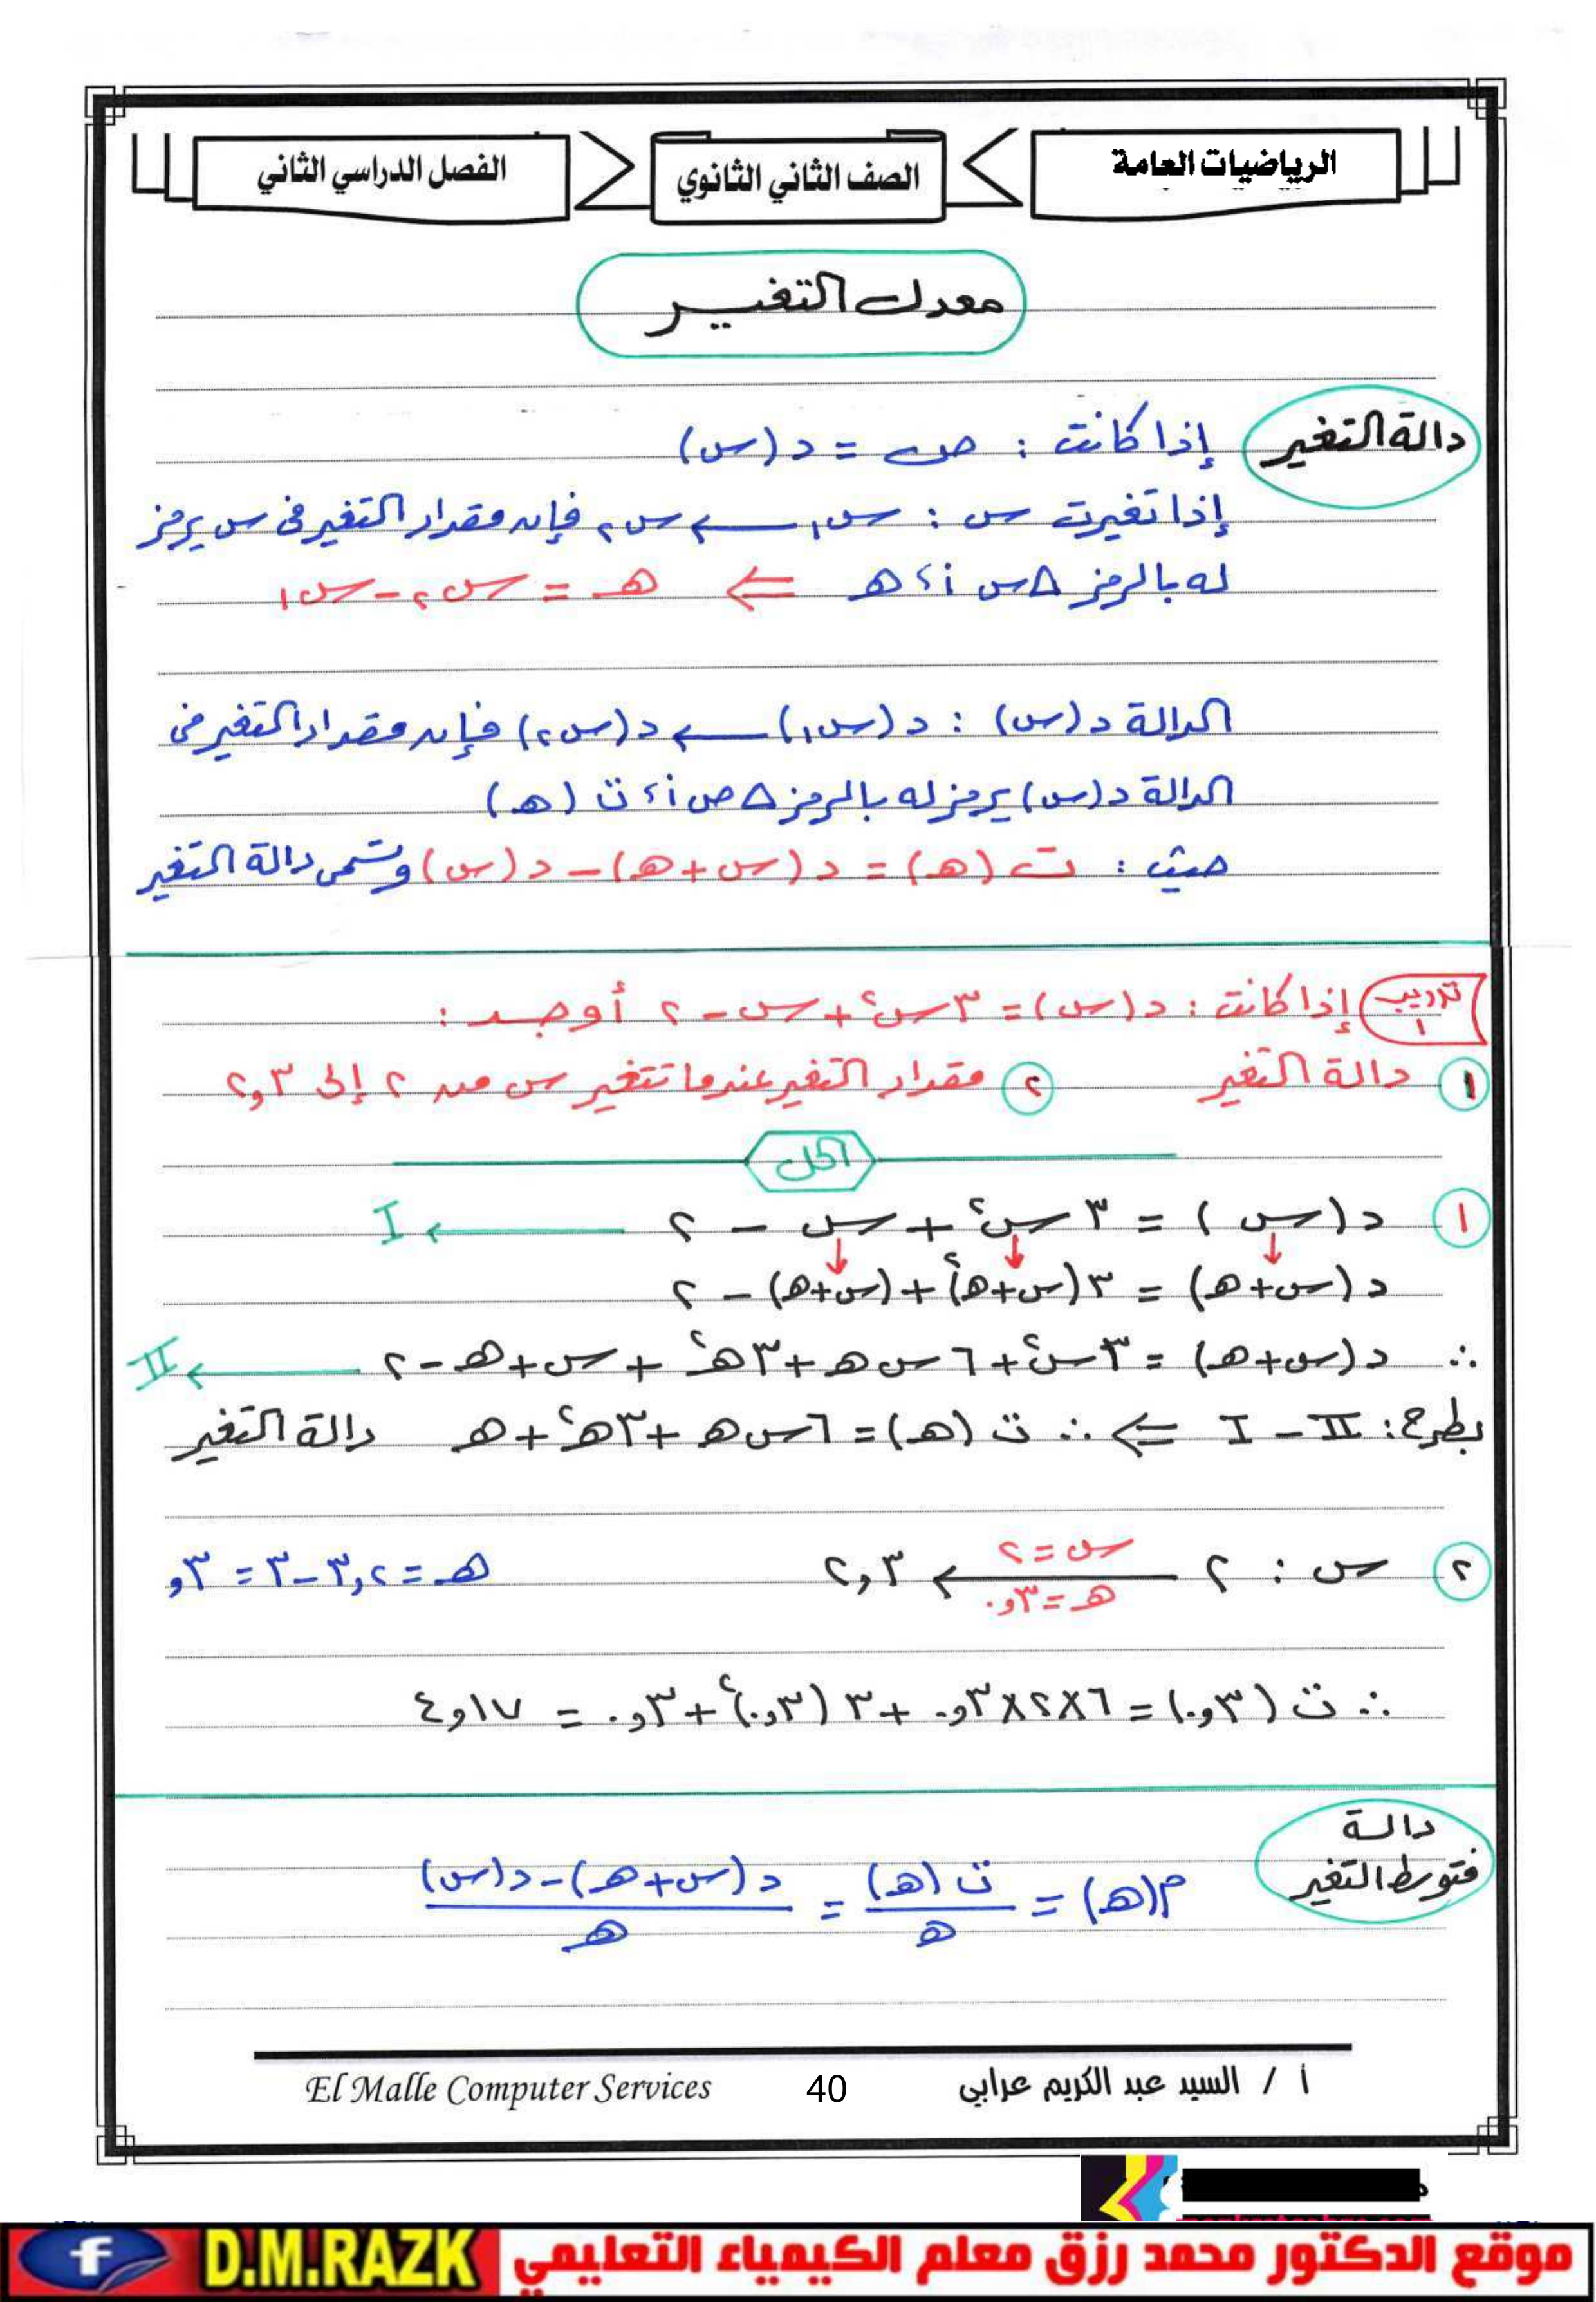 الرياضيات العامة
الصف الثاني الثانوي
الفصل الدراسي الثاني
معدل التغيـــر
دالة التغير
إذا كانت : ص = د (س)
إذا تغيرت س : س١ ← س٢ فإن مقدار التغير فى س يرمز
له بالرمز Δس أ، هـ ⇐ هـ = س٢ - س١
الدالة د (س) : د (س١) ← د (س٢) فإن مقدار التغير فى
الدالة د (س) يرمز له بالرمز Δص أ، ت (هـ)
حيث : ت (هـ) = د (س + هـ) - د (س) وتسمى دالة التغير
تدريب ١ إذا كانت : د (س) = ٣س٢ + س - ٢ أوجــد :
١ دالة التغير ٢ مقدار التغير عندما تتغير س من ٢ إلى ٢,٣
الحل
١ د (س) = ٣س٢ + س - ٢ ← I
د (س+هـ) = ٣(س+هـ)٢ + (س+هـ) - ٢
∴ د (س+هـ) = ٣س٢ + ٦س هـ + ٣هـ٢ + س + هـ - ٢ ← II
بطرح : II - I ⇐ ∴ ت (هـ) = ٦س هـ + ٣هـ٢ + هـ دالة التغير
٢ س : ٢ ← ٢,٣ س = ٢ هـ = ٠,٣ هـ = ٢,٣ - ٣ = ,٣
∴ ت (٠,٣) = ٦×٢×٠,٣ + ٣ (٠,٣)٢ + ٠,٣ = ٤,١٧
دالــة
متوسط التغير
م(هـ) = ت (هـ) / هـ = د (س + هـ) - د (س) / هـ
أ / السيد عبد الكريم عرابي
40
El Malle Computer Services
موقع الدكتور محمد رزق معلم الكيمياء التعليمي
D.M.RAZK
f